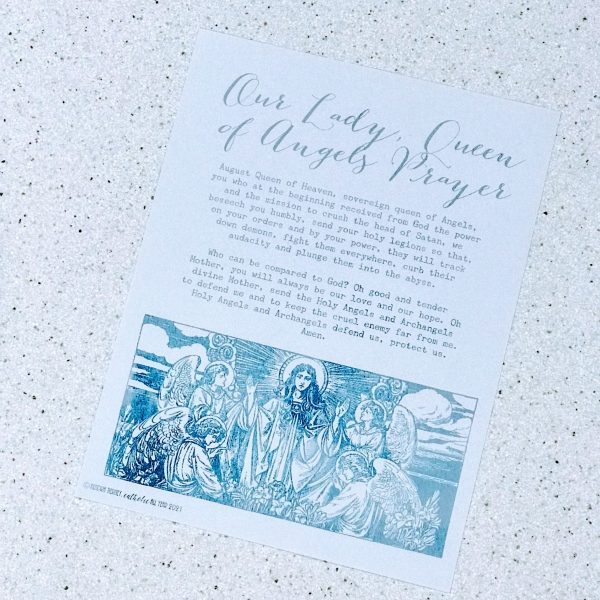 Our Lady, Queen
of Angels Prayer
August Queen of Heaven, sovereign queen of Angels,
you who at the beginning received from God the power
and the mission to crush the head of Satan, we
beseech you humbly, send your holy legions so that,
on your orders and by your power, they will track
down demons, fight them everywhere, curb their
audacity and plunge them into the abyss.
Who can be compared to God? Oh good and tender
Mother, you will always be our love and our hope. Oh
divine Mother, send the Holy Angels and Archangels
to defend me and to keep the cruel enemy far from me.
Holy Angels and Archangels defend us, protect us.
Amen.
catholic ALL YEAR 2021